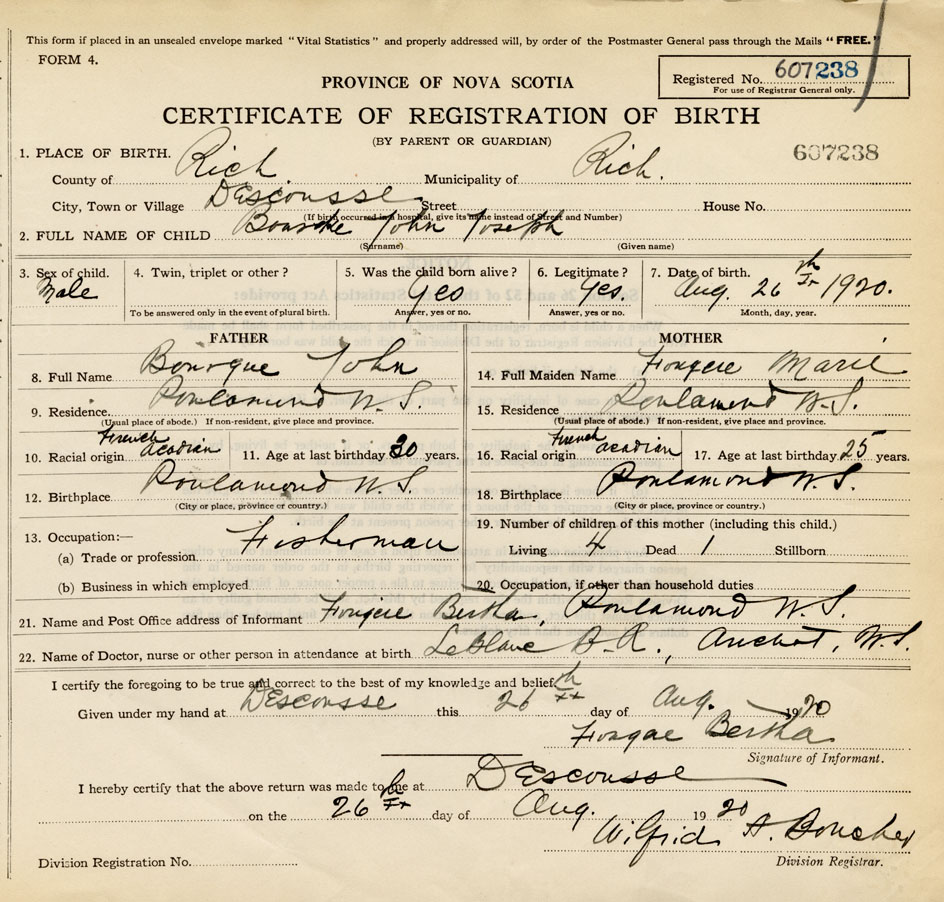 This form if placed in an unsealed envelope marked "Vital Statistics" and properly addressed will, by order of the Postmaster General pass through the Mails "FREE."
FORM 4.
PROVINCE OF NOVA SCOTIA
Registered No. 607238
For use of Registrar General only.
CERTIFICATE OF REGISTRATION OF BIRTH
(BY PARENT OR GUARDIAN)
607238
1. PLACE OF BIRTH.
County of Rich Municipality of Rich.
City, Town or Village DEscousse Street House No.
(If birth occurred in a hospital, give its name instead of Street and Number)
2. FULL NAME OF CHILD John Joseph
(Surname) (Given name)
3. Sex of child. 4. Twin, triplet or other? 5. Was the child born alive? 6. Legitimate? 7. Date of birth.
Male Yes Yes. Aug. 26th 1920.
To be answered only in the event of plural birth. Answer, yes or no. Answer, yes or no. Month, day, year.
FATHER MOTHER
8. Full Name John 14. Full Maiden Name Marie
9. Residence. Poulamond N.S. 15. Residence. Poulamond N.S.
(Usual place of abode.) If non-resident, give place and province. (Usual place of abode.) If non-resident, give place and province.
10. Racial origin French acadian 11. Age at last birthday 30 years. 16. Racial origin French acadian 17. Age at last birthday 25 years.
12. Birthplace Poulamond N.S. 18. Birthplace Poulamond N.S.
(City or place, province or country.) (City or place, province or country.)
13. Occupation:— 19. Number of children of this mother (including this child.)
(a) Trade or profession Fisherman Living 4 Dead 1 Stillborn
(b) Business in which employed 20. Occupation, if other than household duties
21. Name and Post Office address of Informant Bertha, Poulamond N.S.
22. Name of Doctor, nurse or other person in attendance at birth LeBlanc B.R., N.S.
I certify the foregoing to be true and correct to the best of my knowledge and belief.
Given under my hand at DEscousse this 26th day of Aug. 1920
Bertha
Signature of Informant.
I hereby certify that the above return was made to me at DEscousse
on the 26th day of Aug. 1920
Wilfrid A. Boucher
Division Registration No. Division Registrar.